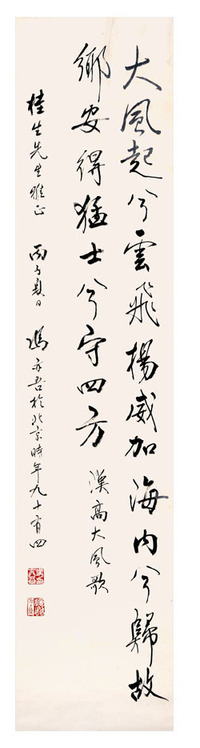 大風起兮雲飛楊威加海内兮歸故
鄉安得猛士兮守四方 漢高大風歌
桂生先生雅正 丙子夏日 馮亦吾於北京時年九十有四